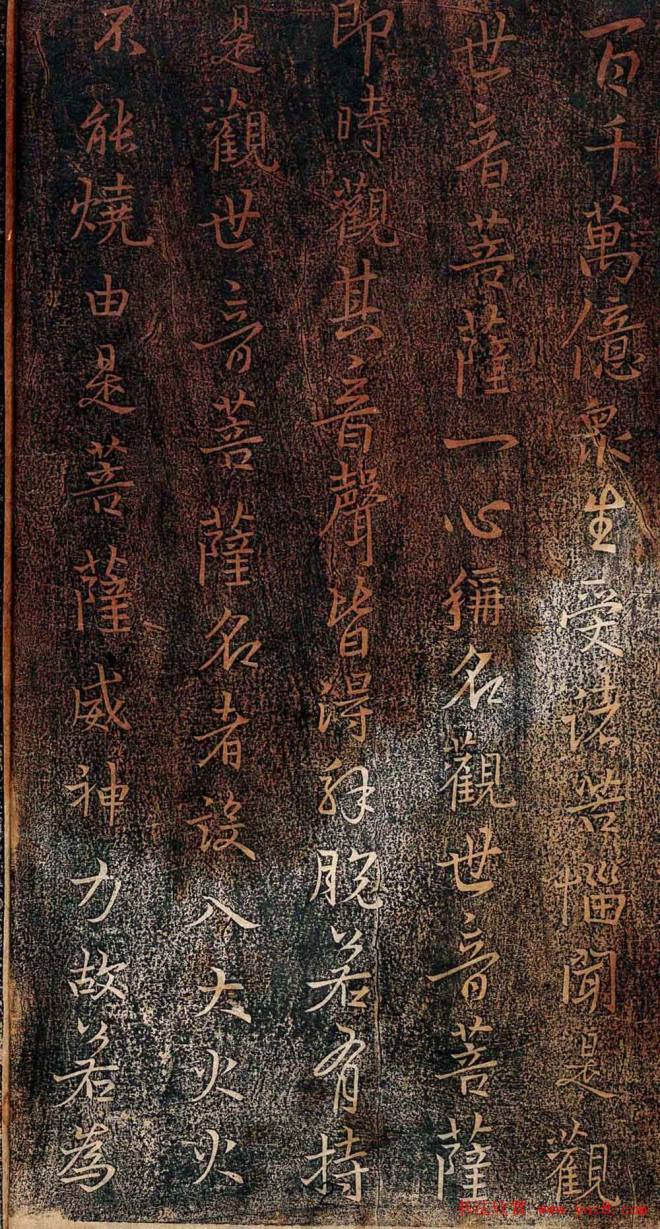 百千萬億眾生受諸苦惱聞是觀
世音菩薩一心稱名觀世音菩薩
即時觀其音聲皆得解脫若有持
是觀世音菩薩名者設入大火火
不能燒由是菩薩威神力故若為
书法欣赏 www.yac8.com